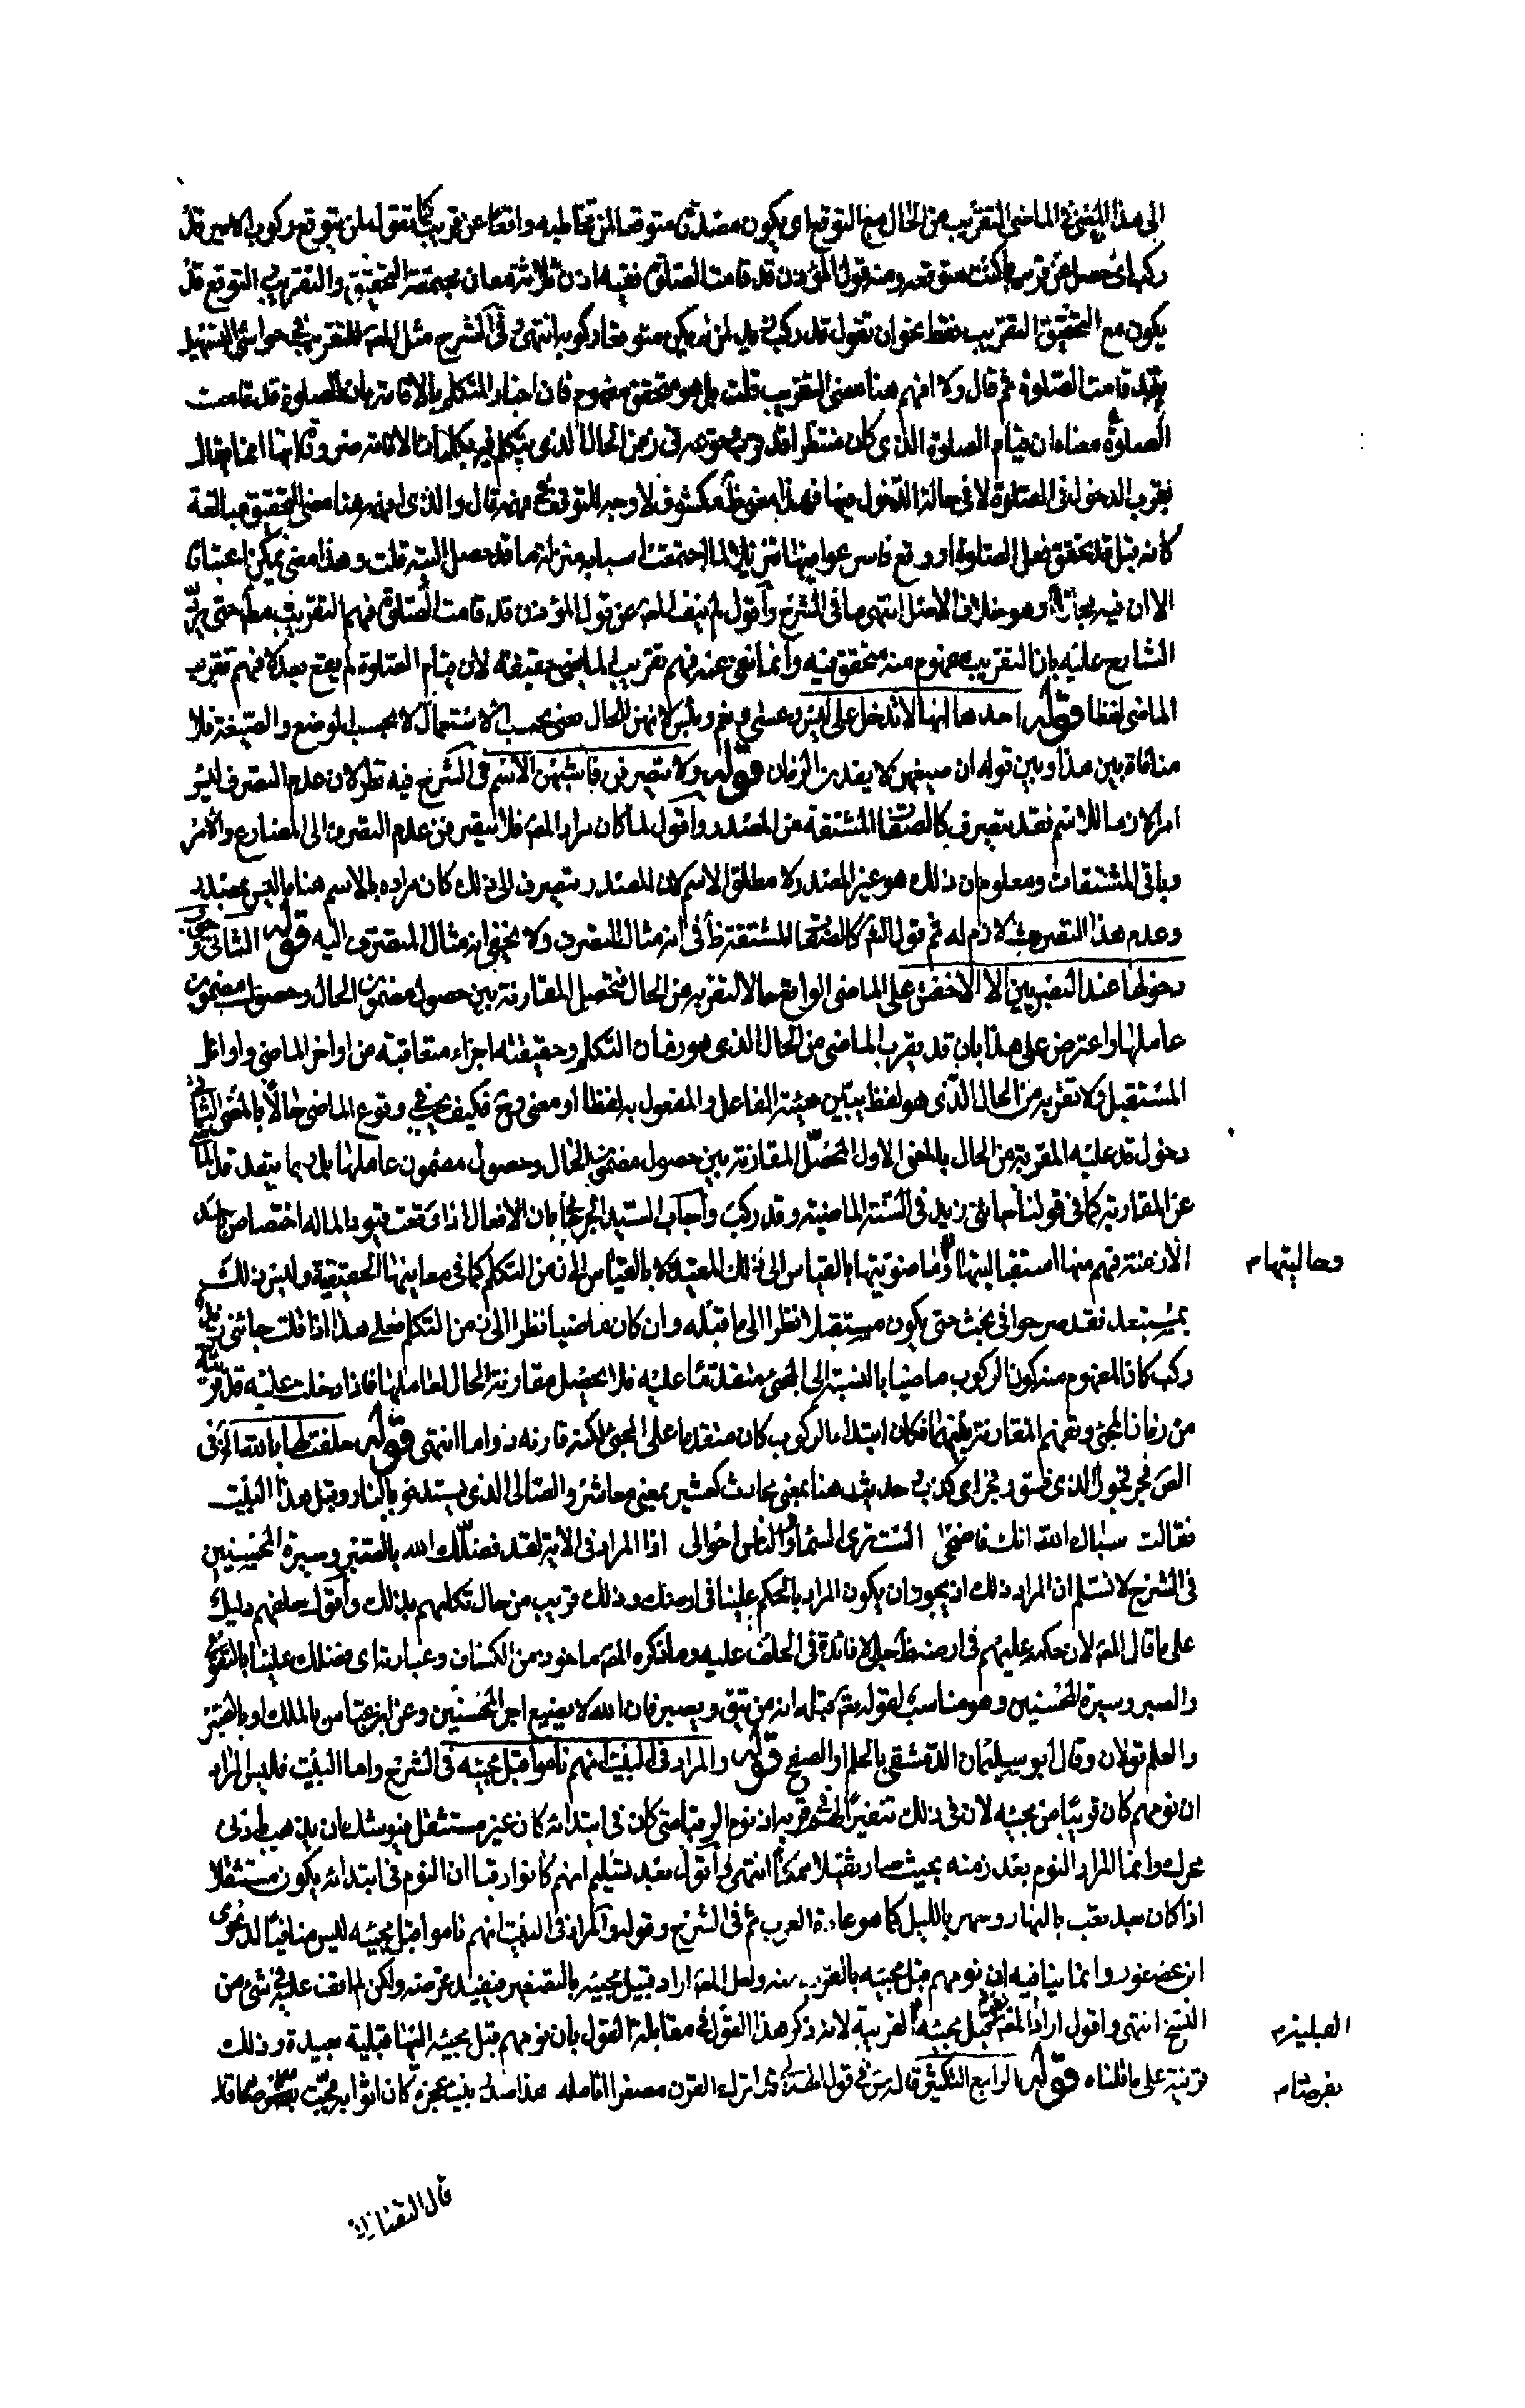 الى هذا المعنى في الماضى التقريب من الحال مع التوقع اى يكون مصدره متوقعا لمن تخاطبه واقعا عن قريب كما تقول لمن يتوقع ركوب الامير قد
ركب اى حصل عن قريب ما كنت متوقعه ومنه قول المؤذن قد قامت الصلوة ففيه اذن ثلاثة معان مجتمعة التحقيق والتقريب والتوقع وقد
يكون مع التحقيق التقريب فقط نحو ان تقول قد ركب زيد لمن لم يكن متوقعا ركوبه انتهى في الشرح مثل المص للتقريب في حواشى التسهيل
بقد قامت الصلوة ثم قال ولا افهم هنا معنى التقريب قلت بل هو متحقق مفهوم فان اخبار المتكلم بالاقامة بان الصلوة قد قامت
الصلوة معناه ان قيام الصلوة الذى كان منتظرا قد قرب وقوعه في زمن الحال الذى يتكلم فيه بكلمات الاقامة ضرورة انها انما يقال
بقرب الدخول في الصلوة لا في حالة الدخول فيها فهذا معنى ظ مكشوف لا وجه للتوقف في فهمه قال والذى افهمه هنا معنى التحقيق مبالغة
كانه قيل قد تحقق فعل الصلوة او وقع
الا ان فيه مجازا وهو خلاف الاصل انتهى ما في الشرح واقول لم ينف المص عن قول المؤذن قد قامت الصلوة فهم التقريب مط حتى يرد
الشارح عليه بان التقريب مفهوم منه متحقق فيه وانما نفى عنه فهم تقريب الماضى حقيقة لان قيام الصلوة لم يقع بعد لا فهم تقريب
الماضى لفظا قوله احدها انها لا تدخل على ليس وعسى ونعم وبئس لانهن للحال يعنى بحسب الاستعمال لا بحسب الوضع والصيغة فلا
منافاة بين هذا وبين قوله ان صيغهن لا يفدن الزمان قوله ولا يتصرفن فاشبهن الاسم في الشرح فيه نظر لان عدم التصرف ليس
امرا لازما للاسم فقد يتصرف كالصفات المشتقة من المصدر واقول لما كان مراد المص فلا يتصرفن عدم التصرف الى المضارع والامر
وباقى المشتقات ومعلوم ان ذلك هو غير المصدر لا مطلق الاسم لان المصدر يتصرف الى ذلك كان مراده بالاسم هنا ما ليس بمصدر
وعدم هذا التصرف لازم له ثم قول الش كالصفات المشتقة ظ في انه مثال للتصرف ولا يخفى انه مثال المتصرف اليه قوله الثانى وجوب
دخولها عند البصريين الا الاخفش على الماضى الواقع حالا لتقربه من الحال فتحصل المقارنة بين حصول مضمون الحال وحصول مضمون
عاملها واعترض على هذا بان قد يقرب الماضى من الحال الذى هو زمان التكلم وحقيقته اجزاء متعاقبة من اواخر الماضى واوائل
المستقبل ولا تقربه من الحال الذى هو لفظ يبين هيئة الفاعل والمفعول به لفظا او معنى وح فكيف يجب في وقوع الماضى حالا بالمعنى الثانى
دخول قد عليه المقربة من الحال بالمعنى الاول المحصل المقارنة بين حصول مضمون الحال وحصول مضمون عاملها بل ربما يبعد قد الماضى
عن المقارنة كما في قولنا جائنى زيد في السنة الماضية وقد ركب واجاب السيد الجرجانى بان الافعال اذا وقعت قيودا لما له اختصاص باحد
الازمنة فهم منها استقباليتها وماضويتها بالقياس الى ذلك المقيد لا بالقياس الى زمن التكلم كما في معاينها الحقيقية وليس ذلك
وحاليتها م
بمستبعد فقد صرحوا في بحث حتى يكون مستقبلا نظرا الى ما قبله وان كان ماضيا نظرا الى زمن التكلم فعلى هذا اذا قلت جائنى زيد
ركب كان المفهوم منه كون الركوب ماضيا بالنسبة الى المجئ متقدما عليه فلا يحصل مقارنة الحال لعاملها فاذا دخلت عليه قد قربته
من زمان المجئ وتفهم المقارنة بينهما فكان ابتداء الركوب كان متقدما على المجئ لكنه قارنه دواما انتهى قوله حلفت لها بالله الخ في
الص فجر فجورا اذى فسق وفجر اى كذب حديث هنا بمعنى محادث كعشير بمعنى معاشر والصالى الذى يستدفئ بالنار وقبل هذا البيت
فقالت سباك الله انك فاضحى الست ترى السمار والناس احوالى اذا المراد في الآية لقد فضلك الله بالصبر وسيرة المحسنين
في الشرح لا نسلم ان المراد ذلك اذ يجوز ان يكون المراد بالحكم علينا في ارضك وذلك قريب من حال تكلمهم بذلك واقول حلفهم دليل
على ما قال المص لان حكمه عليهم في ارضه ظ جلى لا فائدة في الحلف عليه وما ذكره المص ماخوذ من الكشاف وعبارته اى فضلك علينا بالتقوى
والصبر وسيرة المحسنين وهو مناسب لقوله تع قبله انه من يتق ويصبر فان الله لا يضيع اجر المحسنين وعن ابن عباس بالملك او بالصبر
والعلم قولان وقال ابو سليمان الدمشقى بالحلم والصفح قوله والمراد في البيت انهم ناموا قبل مجيئه في الشرح واما البيت فليس المراد
ان نومهم كان قريبا من مجيئه لان في ذلك تنفيرا لمعشوقه اذ نوم الرقبا متى كان في ابتدائه كان غير مستثقل فيوشك ان يذهب بادنى
محرك وانما المراد النوم بعد زمنه بحيث صار ثقيلا ممكنا انتهى واقول بعد تسليم انهم كانوا رقبا ان النوم في ابتدائه يكون مستثقلا
اذا كان بعد تعب بالنهار وسهر بالليل كما هو عادة العرب ثم في الشرح وقوله والمراد في البيت انهم ناموا قبل مجيئه ليس منافيا لدعوى
ابن عصفور وانما ينافيه ان نومهم قبل مجيئه بالقرب منه ولعل المص اراد قبيل مجيئه بالتصغير فيفيد غرضه ولكن لم اقف عليه في شئ من
النسخ انتهى واقول اراد المص بقبل مجيئه القريبة لانه ذكر هذا القول في مقابلة القول بان نومهم قبل مجيئه انها قبلية بعيدة وذلك
القبلية م
قرينة على ما قلناه قوله الرابع التكثير قاله س في قول الهذلى قد اترك القرن مصفرا انامله هذا صدر بيت عجزه كان اثوابه مجت بفرصاد قد
بفرصاد م
قال التفتازانى